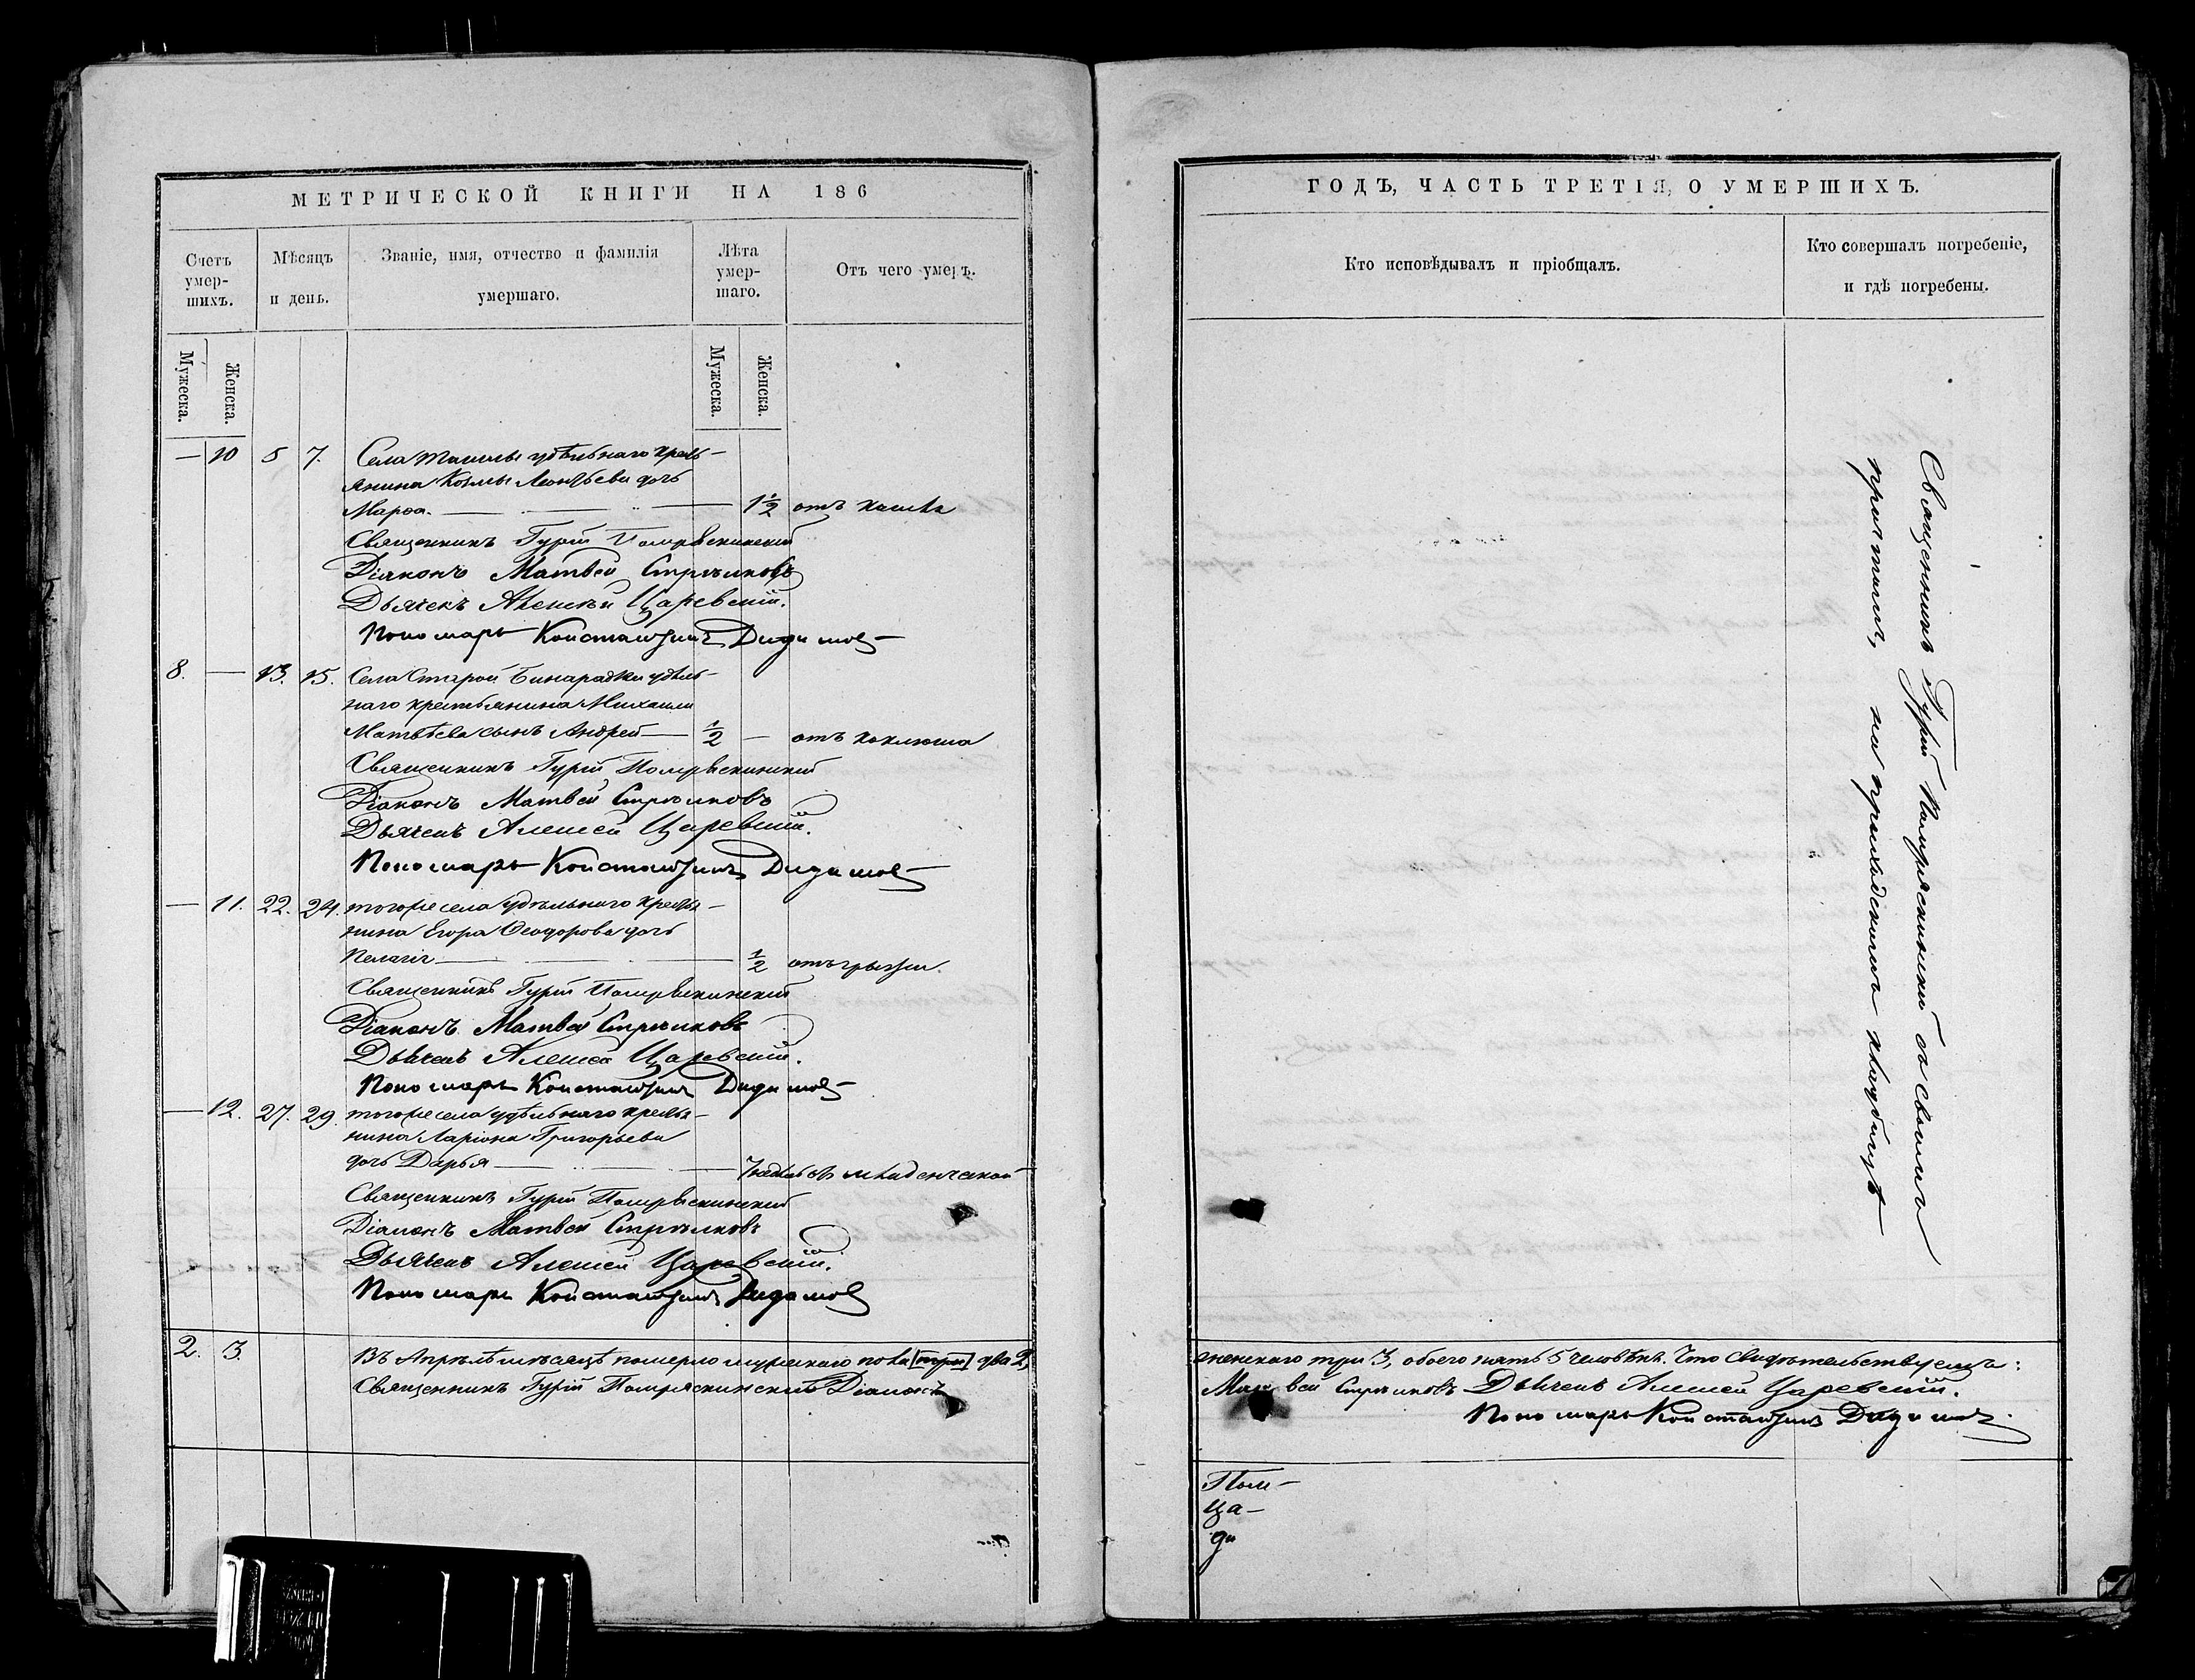 МЕТРИЧЕСКОЙ КНИГИ НА 186
Счетъ умер-шихъ.
Мѣсяцъ и день.
Званіе, имя, отчество и фамилія умершаго.
Лѣта умер-шаго.
Отъ чего умеръ.
Мужеска.
Женска.
Мужеска.
Женска.
— 10 5 7. Села удѣльнаго кресть-
янина Козмы Леонтьева дочь
Марѳа. — 1 1/2 отъ кашля
Священникъ Гурій Помряскинскій
Діаконъ Матвей Стрѣлковъ
Дьячекъ Алексѣй Царевскій.
Пономарь Константинъ Дидимов
8. — 13. 15. Села Старой Бинарадки удѣль-
наго крестьянина Михаила
Матвѣева сынъ Андрей — 1/2 — отъ коклюша
Священникъ Гурій Помряскинскій
Діаконъ Матвей Стрѣлковъ
Дьячекъ Алексей Царевскій.
Пономарь Константинъ Дидимов
— 11. 22. 24. тогоже села удѣльнаго крестья-
нина Егора Ѳеодорова дочь
Пелагія — 1/2 отъ грыжи.
Священникъ Гурій Помряскинскій
Діаконъ Матвей Стрѣлковъ
Дьячекъ Алексей Царевскій.
Пономарь Константинъ Дидимов
— 12. 27. 29. тогоже села удѣльнаго крестья-
нина Ларіона Григорьева
дочь Дарья — младенческой
Священникъ Гурій Помряскинскій
Діаконъ Матвей Стрѣлковъ
Дьячекъ Алексей Царевскій.
Пономарь Константинъ Дидимов
2. 3. Въ Апрѣлѣ мѣсяцѣ померло мужескаго пола [три] два 2,
Священникъ Гурій Помряскинскій Діаконъ
ГОДЪ, ЧАСТЬ ТРЕТІЯ, О УМЕРШИХЪ.
Кто исповѣдывалъ и пріобщалъ.
Кто совершалъ погребеніе,
и гдѣ погребены.
Священникъ Гурій Помряскинскій съ своимъ
причтомъ, на приходскомъ кладбищѣ
женскаго три 3, обоего пять 5 человѣкъ. Что свидѣтельствуемъ:
Матвей Стрѣлковъ Дьячекъ Алексей Царевскій.
Пономарь Константинъ Дидимов